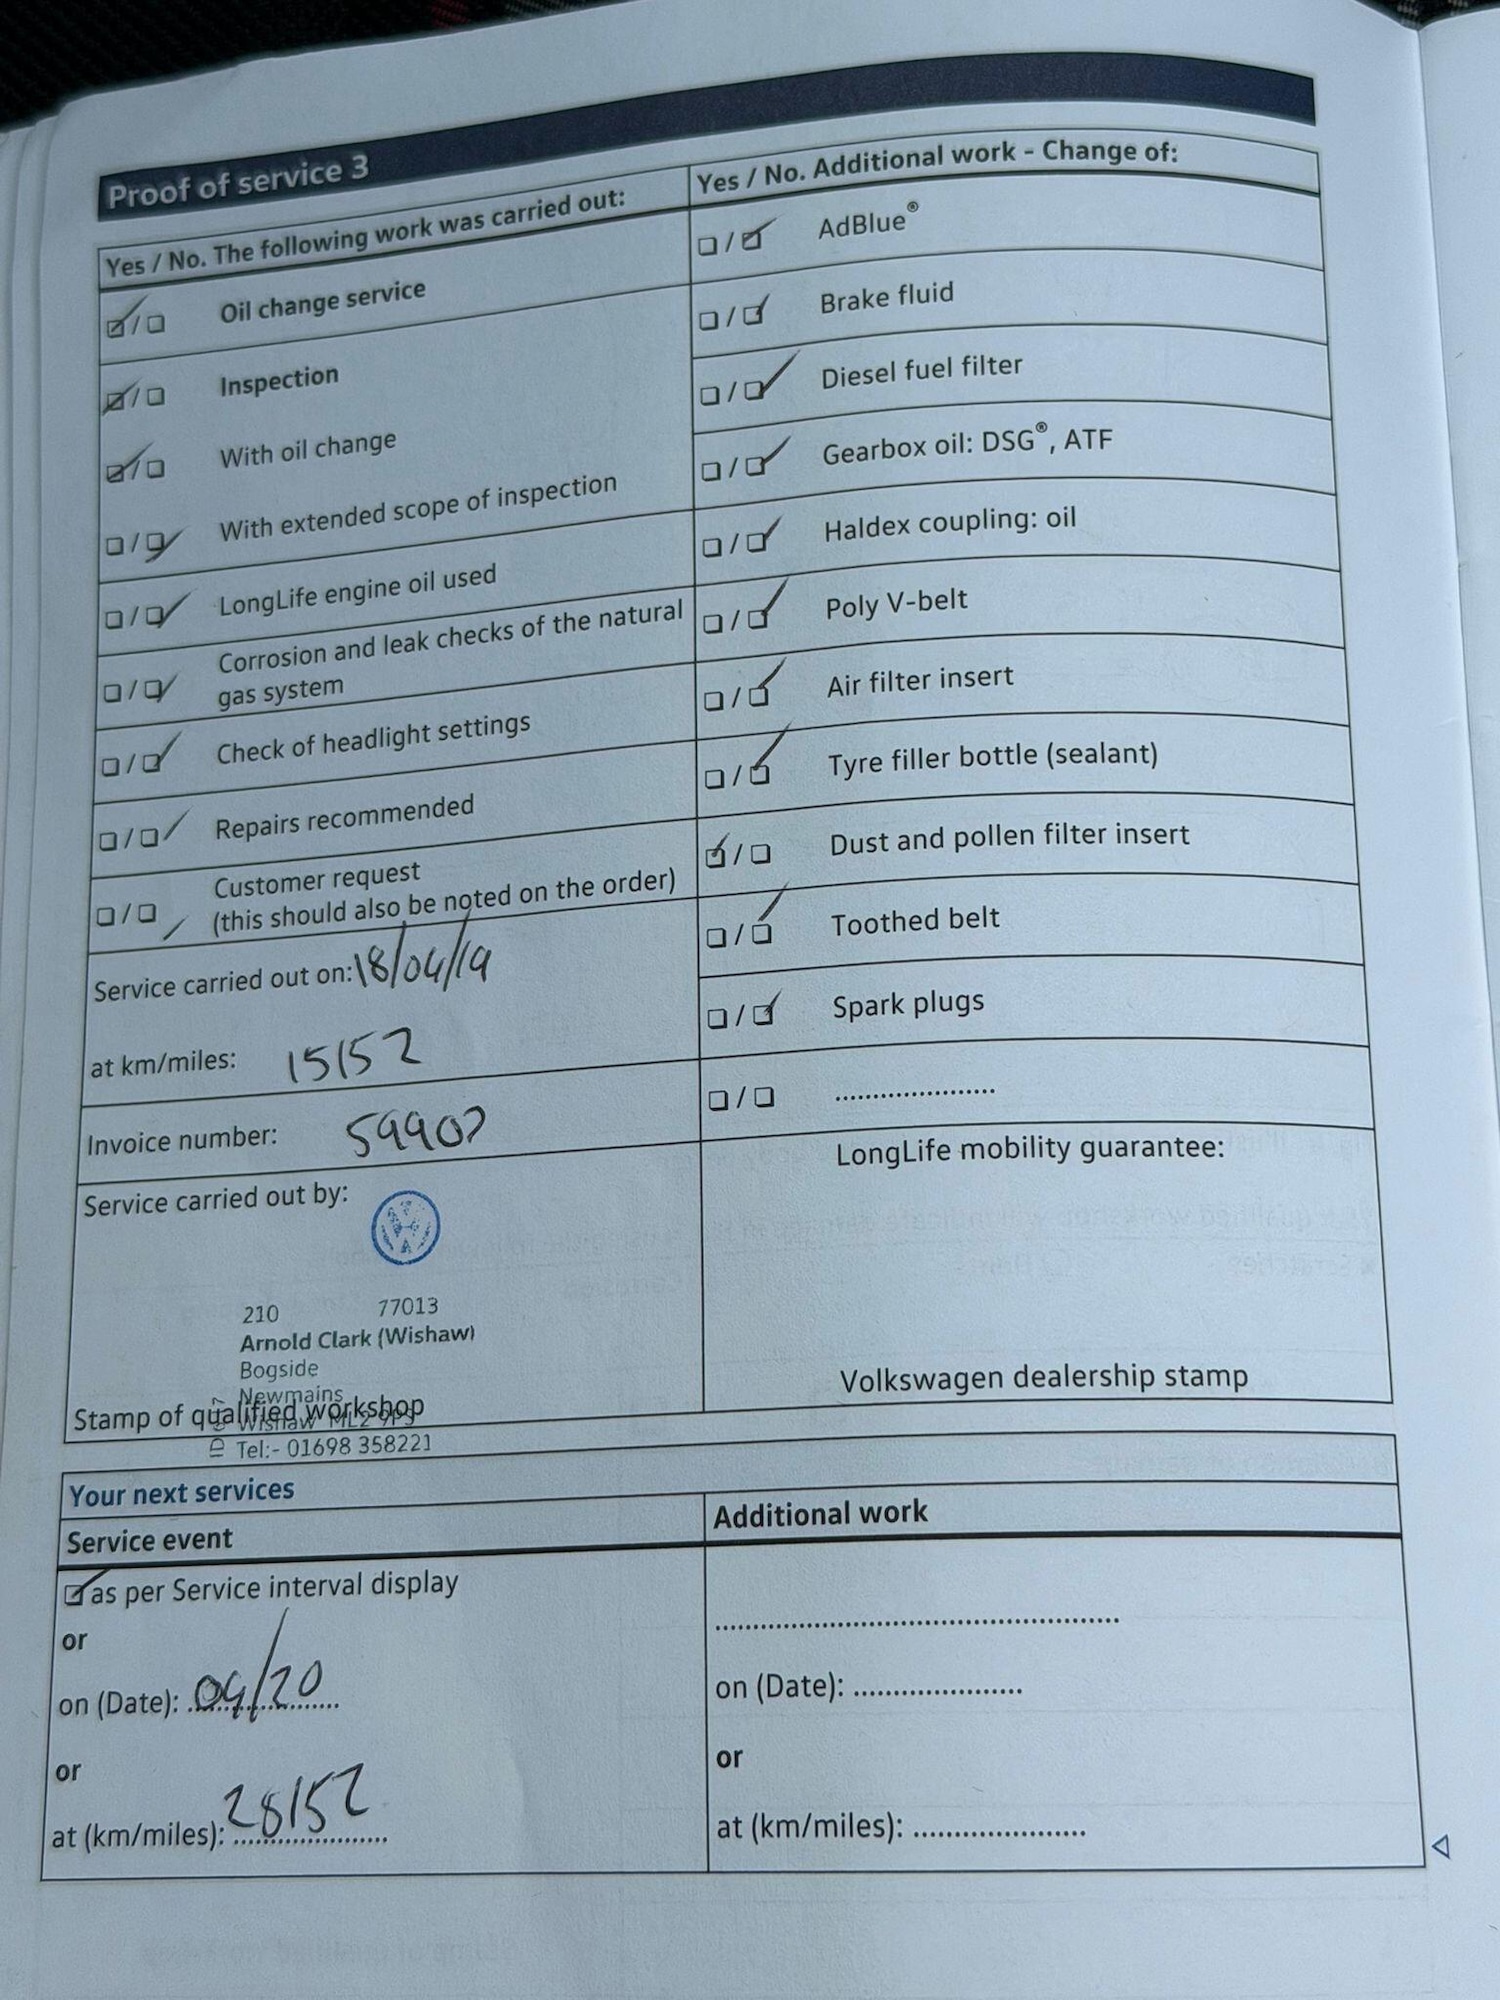 Proof of service 3
Yes / No. The following work was carried out:
Oil change service
Inspection
With oil change
With extended scope of inspection
LongLife engine oil used
Corrosion and leak checks of the natural
gas system
Check of headlight settings
Repairs recommended
Customer request
(this should also be noted on the order)
Service carried out on: 18/04/19
at km/miles: 15152
Invoice number: 59907
Service carried out by:
210 77013
Arnold Clark (Wishaw)
Bogside
Newmains
Wishaw ML2 9PS
Stamp of qualified workshop
Tel:- 01698 358221
Yes / No. Additional work - Change of:
AdBlue®
Brake fluid
Diesel fuel filter
Gearbox oil: DSG®, ATF
Haldex coupling: oil
Poly V-belt
Air filter insert
Tyre filler bottle (sealant)
Dust and pollen filter insert
Toothed belt
Spark plugs
.....................
LongLife mobility guarantee:
Volkswagen dealership stamp
Your next services
Service event
as per Service interval display
or
on (Date): 04/20
or
at (km/miles): 28152
Additional work
on (Date): .....................
or
at (km/miles): .....................